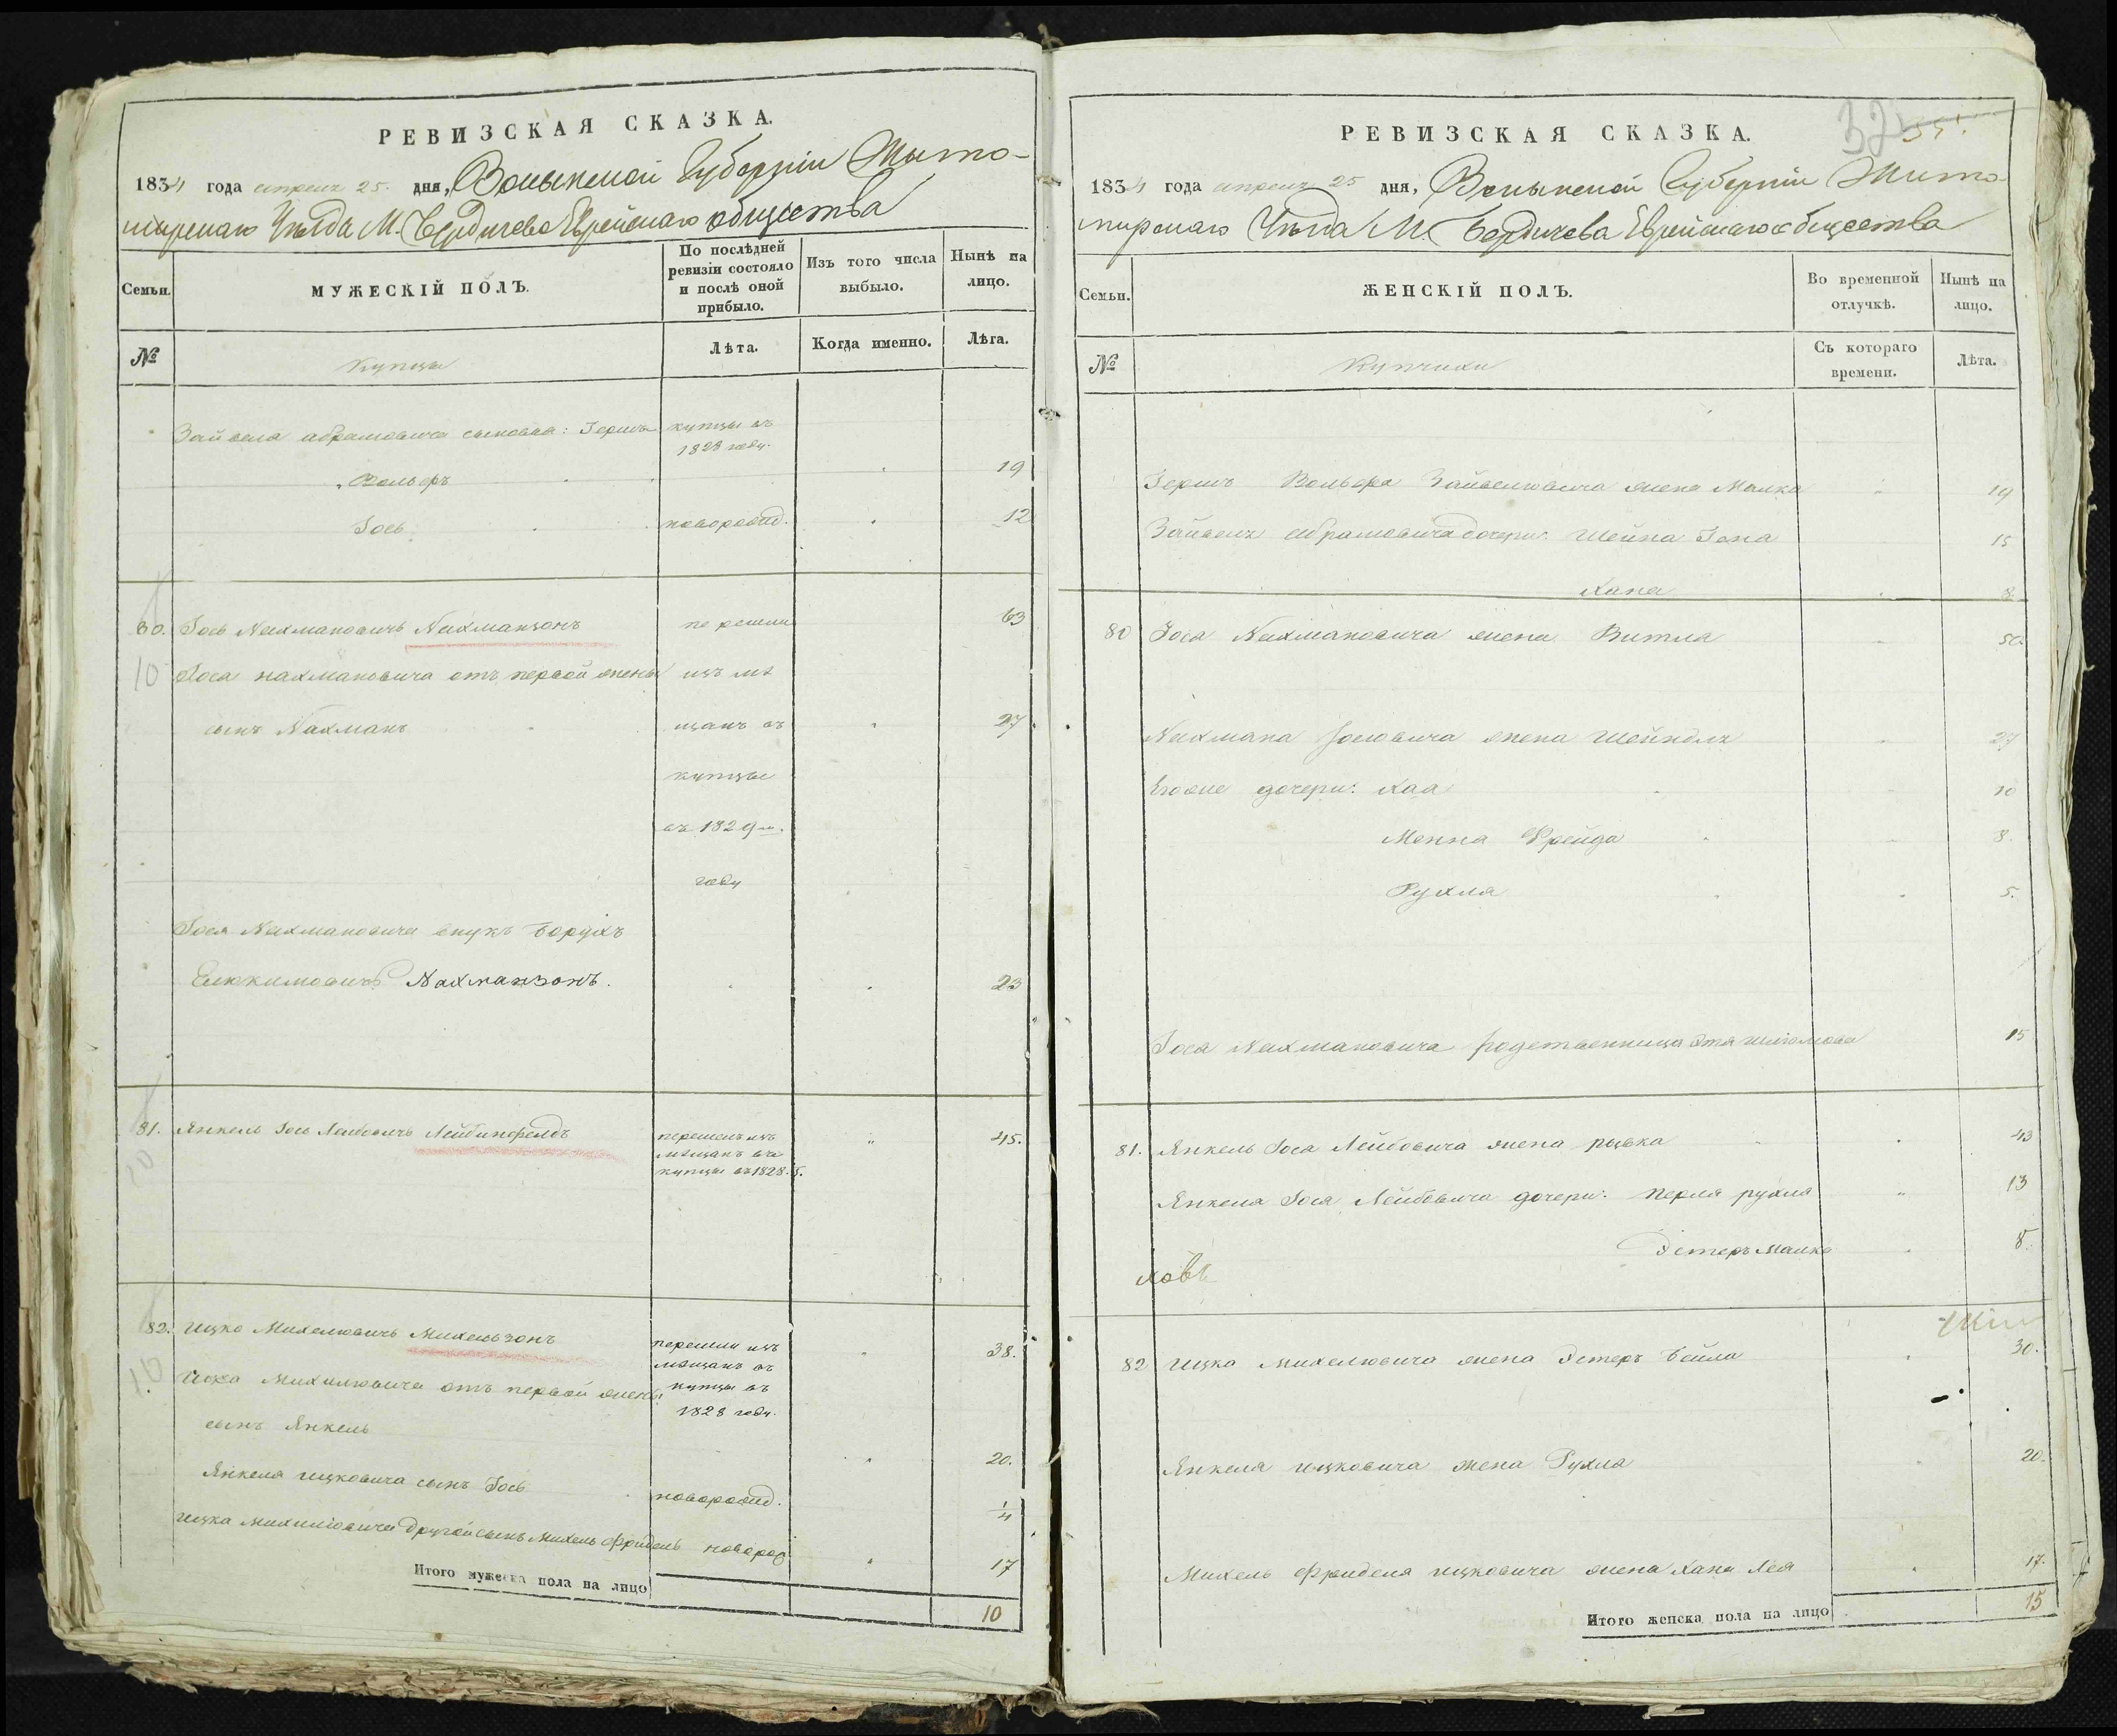 РЕВИЗСКАЯ СКАЗКА.
1834 года апреля 25. дня, Волынской Губерніи Жито-
мирскаго Уѣзда М. Бердичева Еврейскаго общества
Семьи.
МУЖЕСКІЙ ПОЛЪ.
По послѣдней ревизіи состояло и послѣ оной прибыло.
Изъ того числа выбыло.
Нынѣ на лицо.
№
Купцы
Лѣта.
Когда именно.
Лѣта.
Зайвела абрамовича сыновья: Гершъ купцы въ
1828 году.
Вольфъ 19
Іось новорожд. 12
80. Іось Нахмановичъ Нахманзонъ перешли 63
10 Іося нахмановича отъ первой жены изъ мѣ
сынъ Нахманъ щанъ въ 27
купцы
въ 1829м.
году
Іося Нахмановича внукъ Борухъ
Елюкимовичъ Нахманзонъ. 23
81. Янкель Іось Лейбовичъ Лейбинфельдъ перешелъ изъ 45.
10 мѣщанъ въ
купцы въ 1828. г.
82. Ицко Михелювичъ Михельзонъ перешли изъ 38.
мѣщанъ въ
10 Ицка Михилювича отъ первой жены купцы въ
1828 году.
сынъ Янкель 20.
Янкеля ицковича сынъ Іось новорожд. 1/4
ицка михилювича другой сынъ михель фридель новорож 17
Итого мужеска пола на лицо 10
32
РЕВИЗСКАЯ СКАЗКА.
1834 года апреля 25 дня, Волынской Губерніи Жито-
мирскаго Уѣзда М. Бердичева Еврейскаго общества
Семьи.
ЖЕНСКІЙ ПОЛЪ.
Во временной отлучкѣ.
Нынѣ на лицо.
№
Купчихи
Съ котораго времени.
Лѣта.
Гершъ Вольфа Зайвелювича жена Малка 19
Зайвеля абрамовича дочери: Шейна Гена 15
Хана 8
80 Іося Нахмановича жена Витля 50.
Нахмана Іосювича жена Шейндля 27
Егоже дочери: Хая 10
Менна Фрейда 8.
Рухля 5.
Іося Нахмановича родственница Этя шлюмова 15
81. Янкель Іося Лейбовича жена рывка 43
Янкеля Іося Лейбовича дочери: перля рухля 13
Эстеръ Малка 8.
82 Ицка михелювича жена Эстеръ Бейла 30.
Янкеля ицковича жена Рухля 20.
Михель фриделя ицковича жена Хана Лея 17.
Итого женска пола на лицо 15